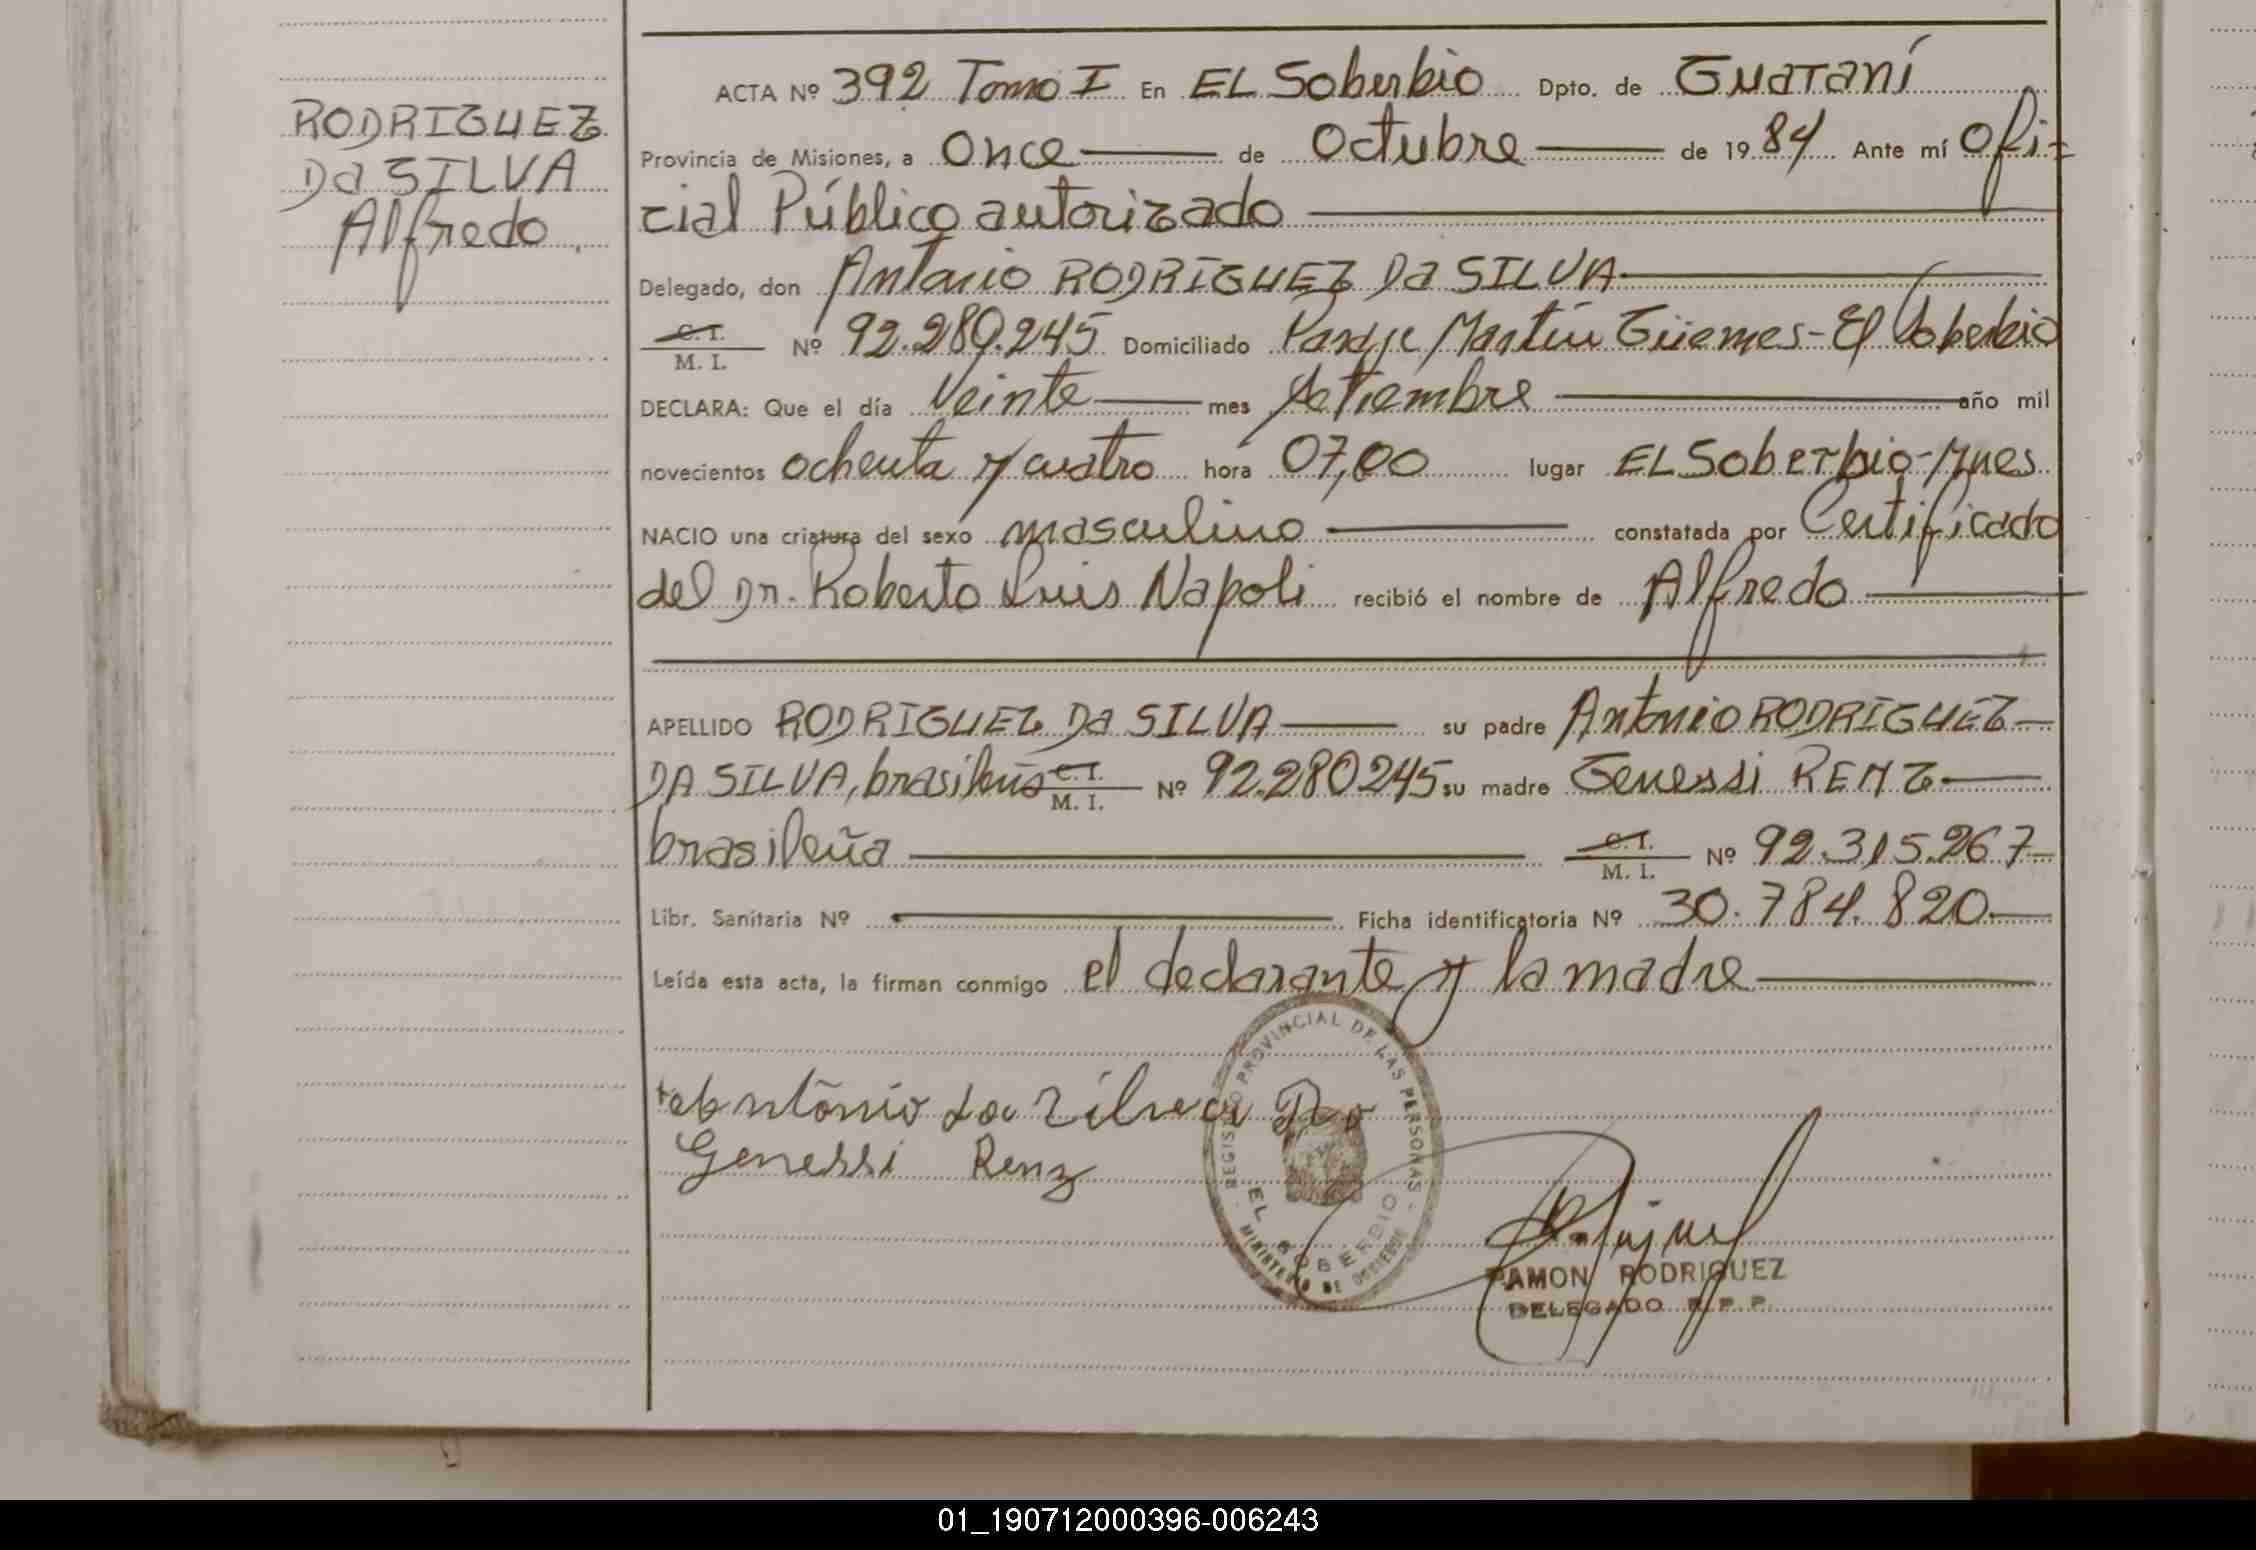 RODRIGUEZ
Da SILVA
Alfredo.
ACTA Nº 392 Tomo I En EL Soberbio Dpto. de Guaraní
Provincia de Misiones, a Once de Octubre de 1984 Ante mí Ofi-
cial Público autorizado
Delegado, don Antonio RODRIGUEZ Da SILVA
C. I.
M. I. Nº 92.280.245 Domiciliado Paraje Martín Güemes-El Soberbio
DECLARA: Que el día Veinte mes Setiembre año mil
novecientos ochenta y cuatro hora 07,00 lugar EL Soberbio-Mnes
NACIO una criatura del sexo masculino constatada por Certificado
del Dr. Roberto Luis Napoli recibió el nombre de Alfredo
APELLIDO RODRIGUEZ Da SILVA su padre Antonio RODRIGUEZ
DA SILVA, brasileño C. I.
M. I. Nº 92.280245 su madre Genessi RENZ
brasileña C. I.
M. I. Nº 92.315.267
Libr. Sanitaria Nº Ficha identificatoria Nº 30.784.820
Leída esta acta, la firman conmigo el declarante y la madre
REGISTRO PROVINCIAL DE LAS PERSONAS
EL SOBERBIO
MINISTERIO DE GOBIERNO
Antônio da Silva
Genessi Renz
RAMON RODRIGUEZ
DELEGADO R. P. P.
01_190712000396-006243